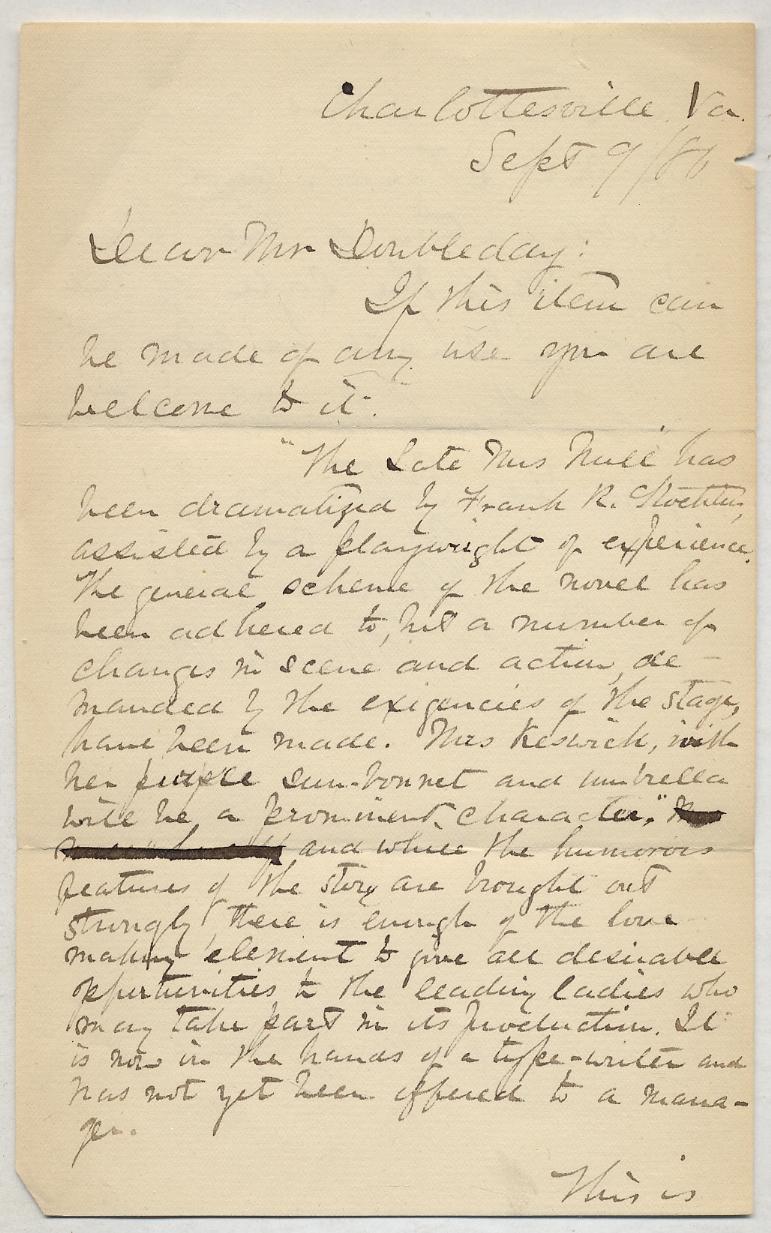 Charlottesville Va.
Sept 9/86
Dear Mr Doubleday:
If this item can
be made of any use you are
welcome to it.
"The Late Mrs Null" has
been dramatized by Frank R. Stockton,
assisted by a playwright of experience.
The general scheme of the novel has
been adhered to, but a number of
changes in scene and action, de-
manded by the exigencies of the stage,
have been made. Mrs Keswick, with
her purple sun-bonnet and umbrella
will be a prominent character,
and while the humorous
features of the story are brought out
strongly, there is enough of the love
making element to give all desirable
opportunities to the leading ladies who
may take part in its production. It
is now in the hands of a type-writer and
has not yet been offered to a mana-
ger.
This is